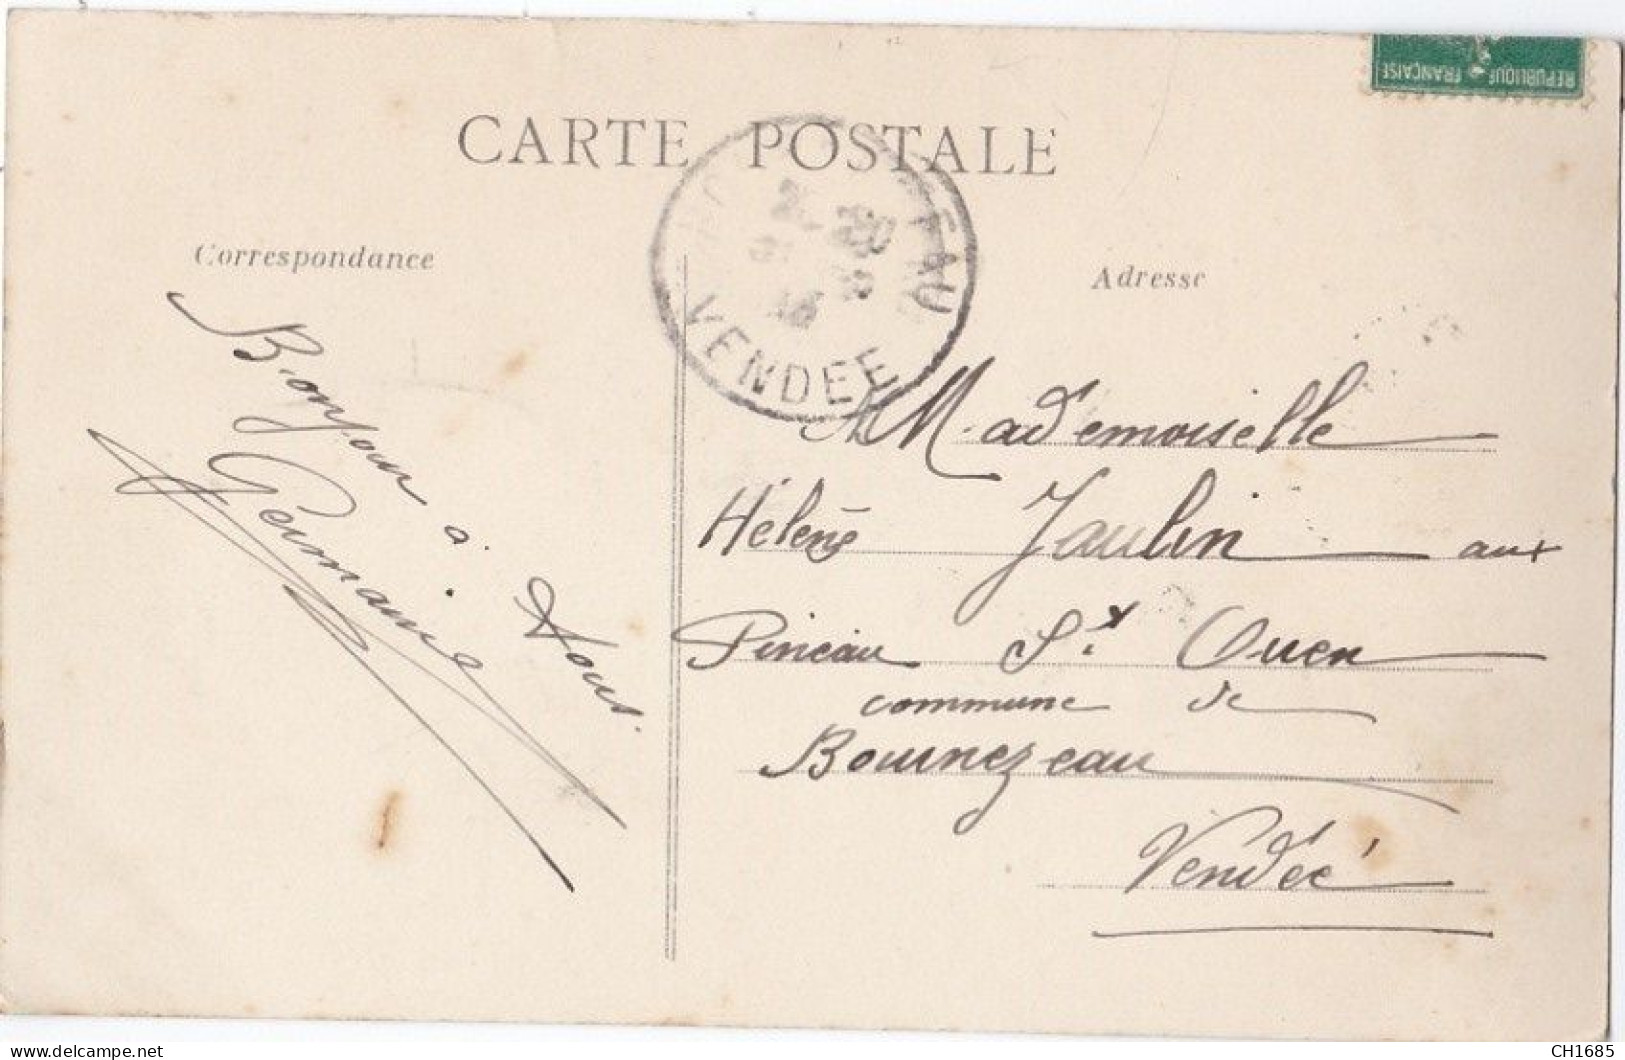 REPUBLIQUE FRANÇAISE
CARTE POSTALE
VENDEE
Correspondance
Adresse
Bonjour à vous.
Germaine
A Mademoiselle
Hélène Jaulin aux
Pineau St Ouen
commune de
Bournezeau
Vendée
delcampe.net
CH1685